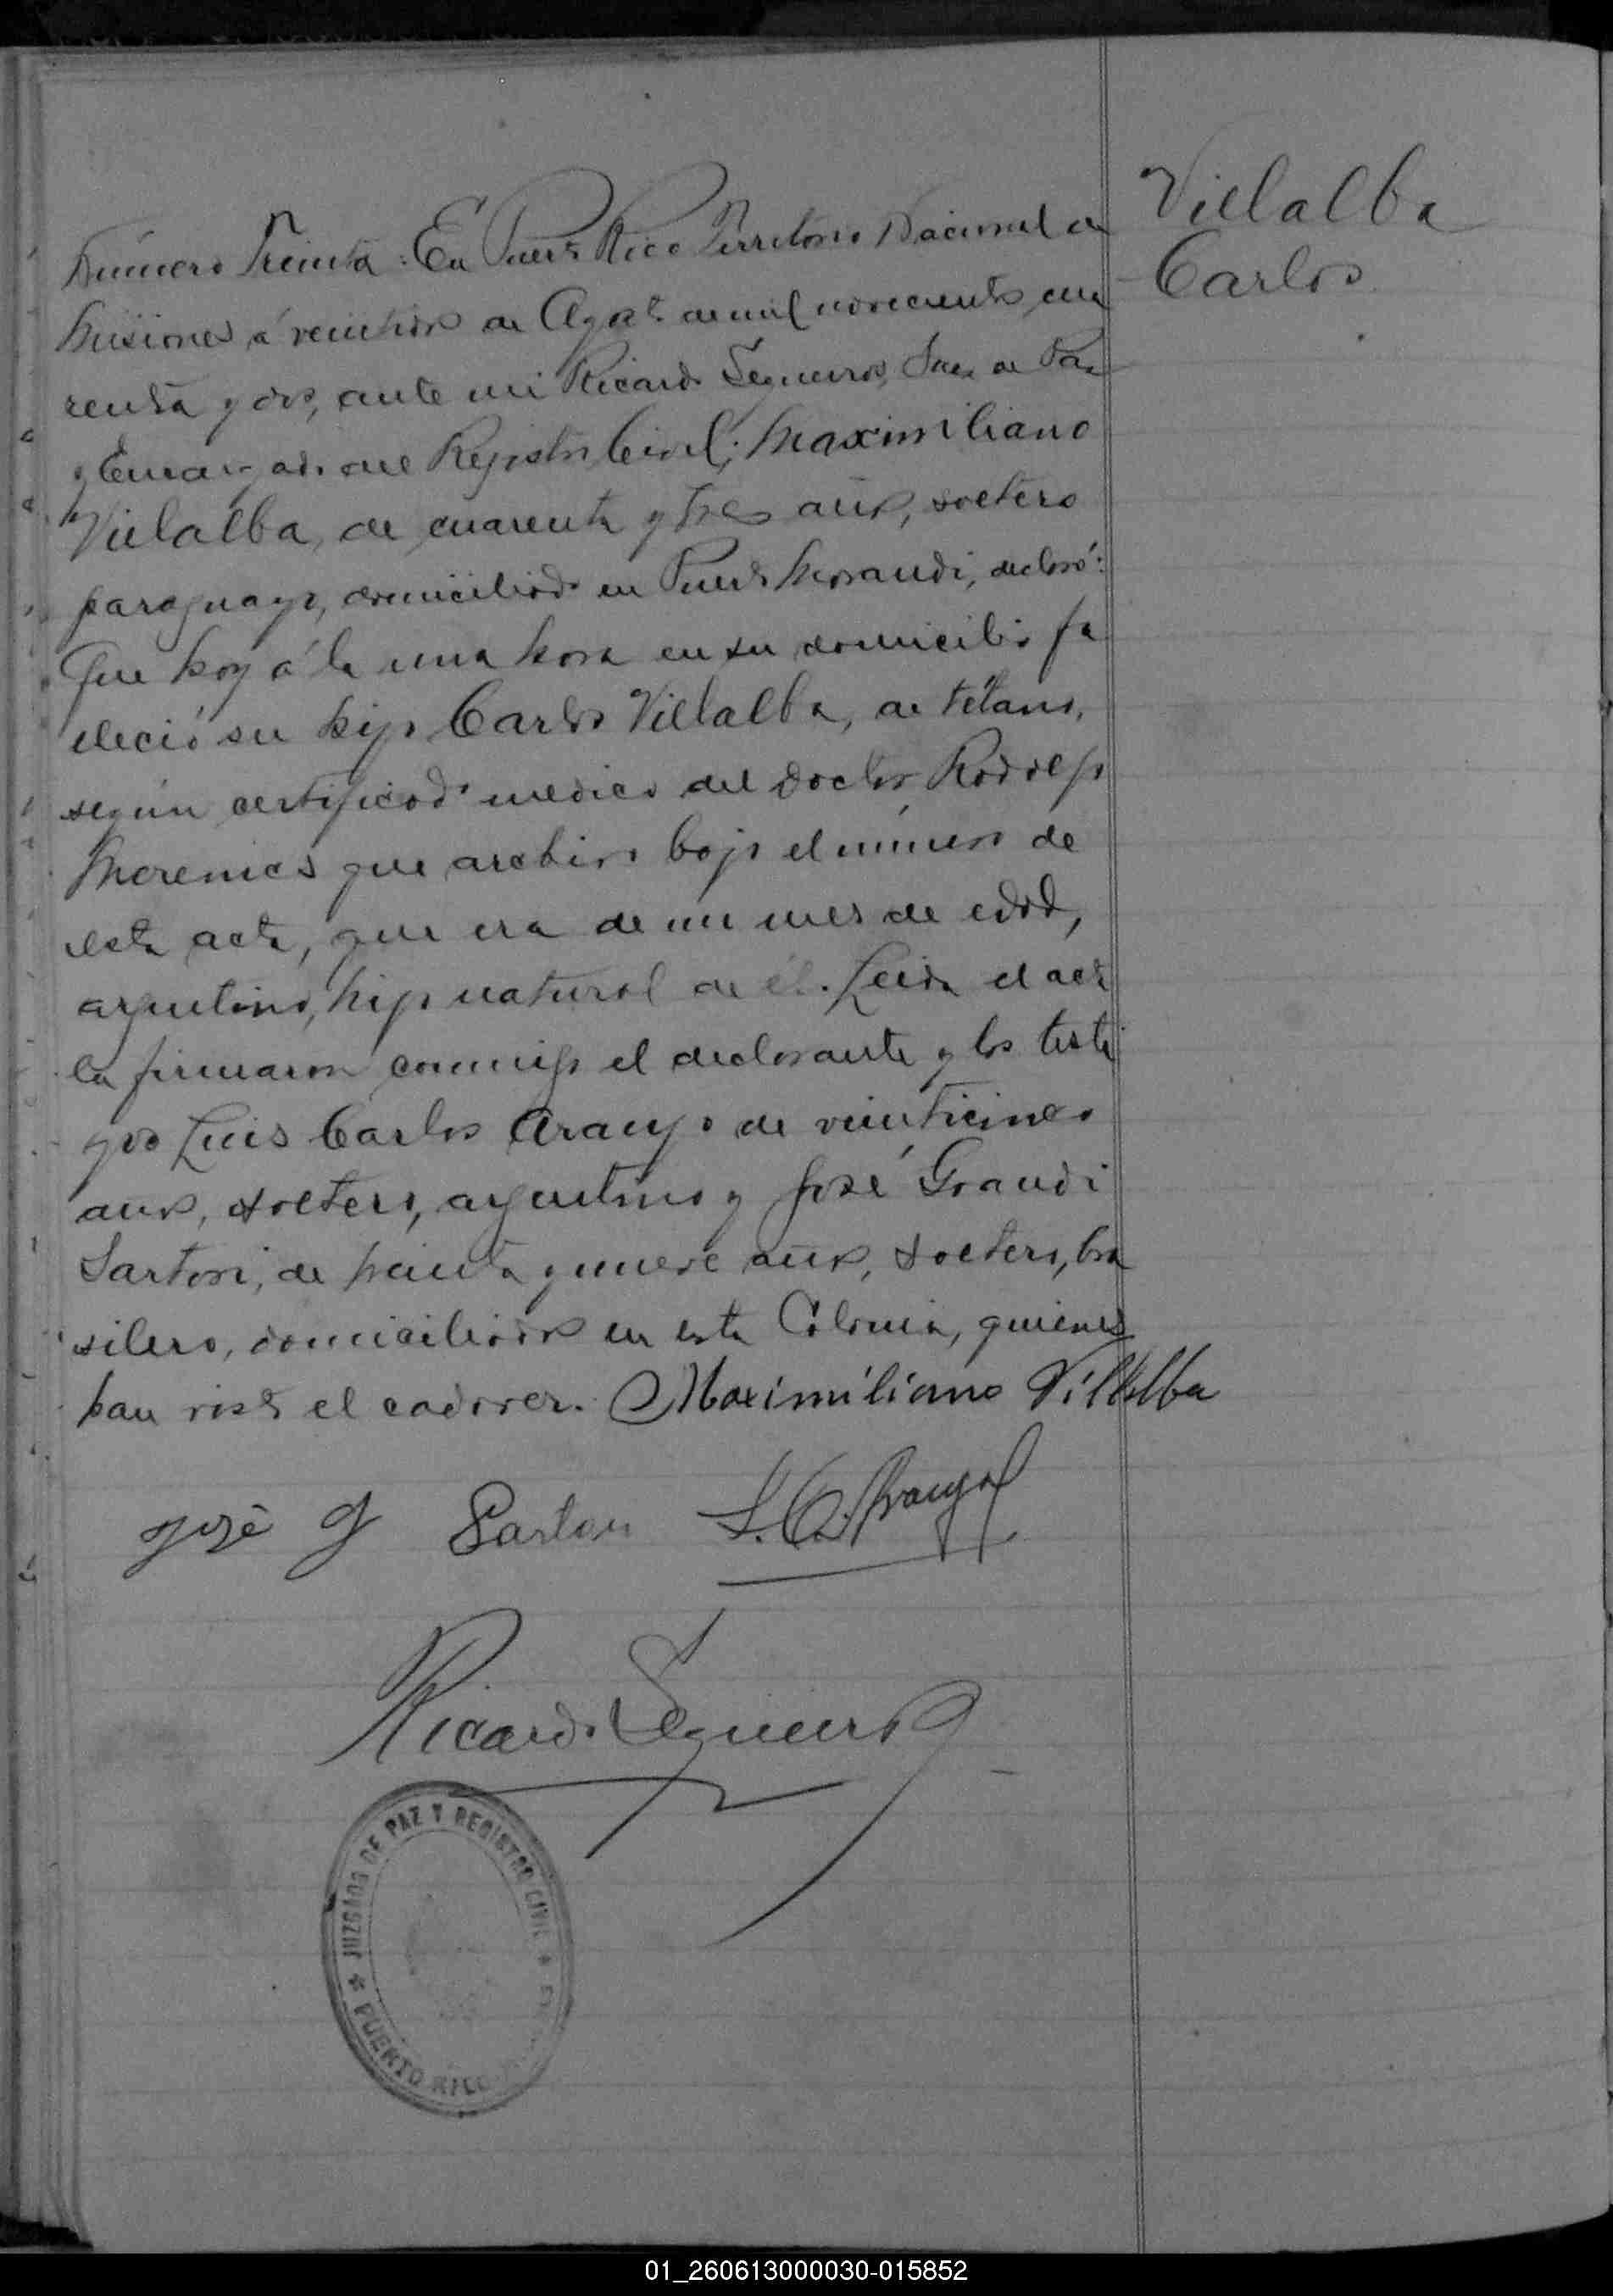 Villalba
Carlos
Número Treinta: En Puerto Rico Territorio Nacional de
Misiones á veintidos de Agosto de mil novecientos cua
renta y dos, ante mi Ricardo Sequeiros, Juez de Paz
y Encargado del Registro Civil; Maximiliano
Villalba, de cuarenta y tres años, soltero
paraguayo, domiciliado en Puerto Morandi, declaró:
Que hoy á la una hora en su domicilio fa
lleció su hijo Carlos Villalba, de tétano,
según certificado medico del Doctor Rodolfo
que archivo bajo el número de
esta acta, que era de un mes de edad,
argentino, hijo natural de él. Leida el acta
la firmaron conmigo el declarante y los testi
gos Luis Carlos Araujo de veinticinco
años, soltero, argentino y José Grandi
Sartori, de treinta y nueve años, soltero, bra
silero, domiciliados en esta Colonia, quienes
han visto el cadáver. Maximiliano Villalba
José G Sartori L. C. Araujo
Ricardo Sequeiros
JUZGADO DE PAZ Y REGISTRO CIVIL
PUERTO RICO
01_260613000030-015852